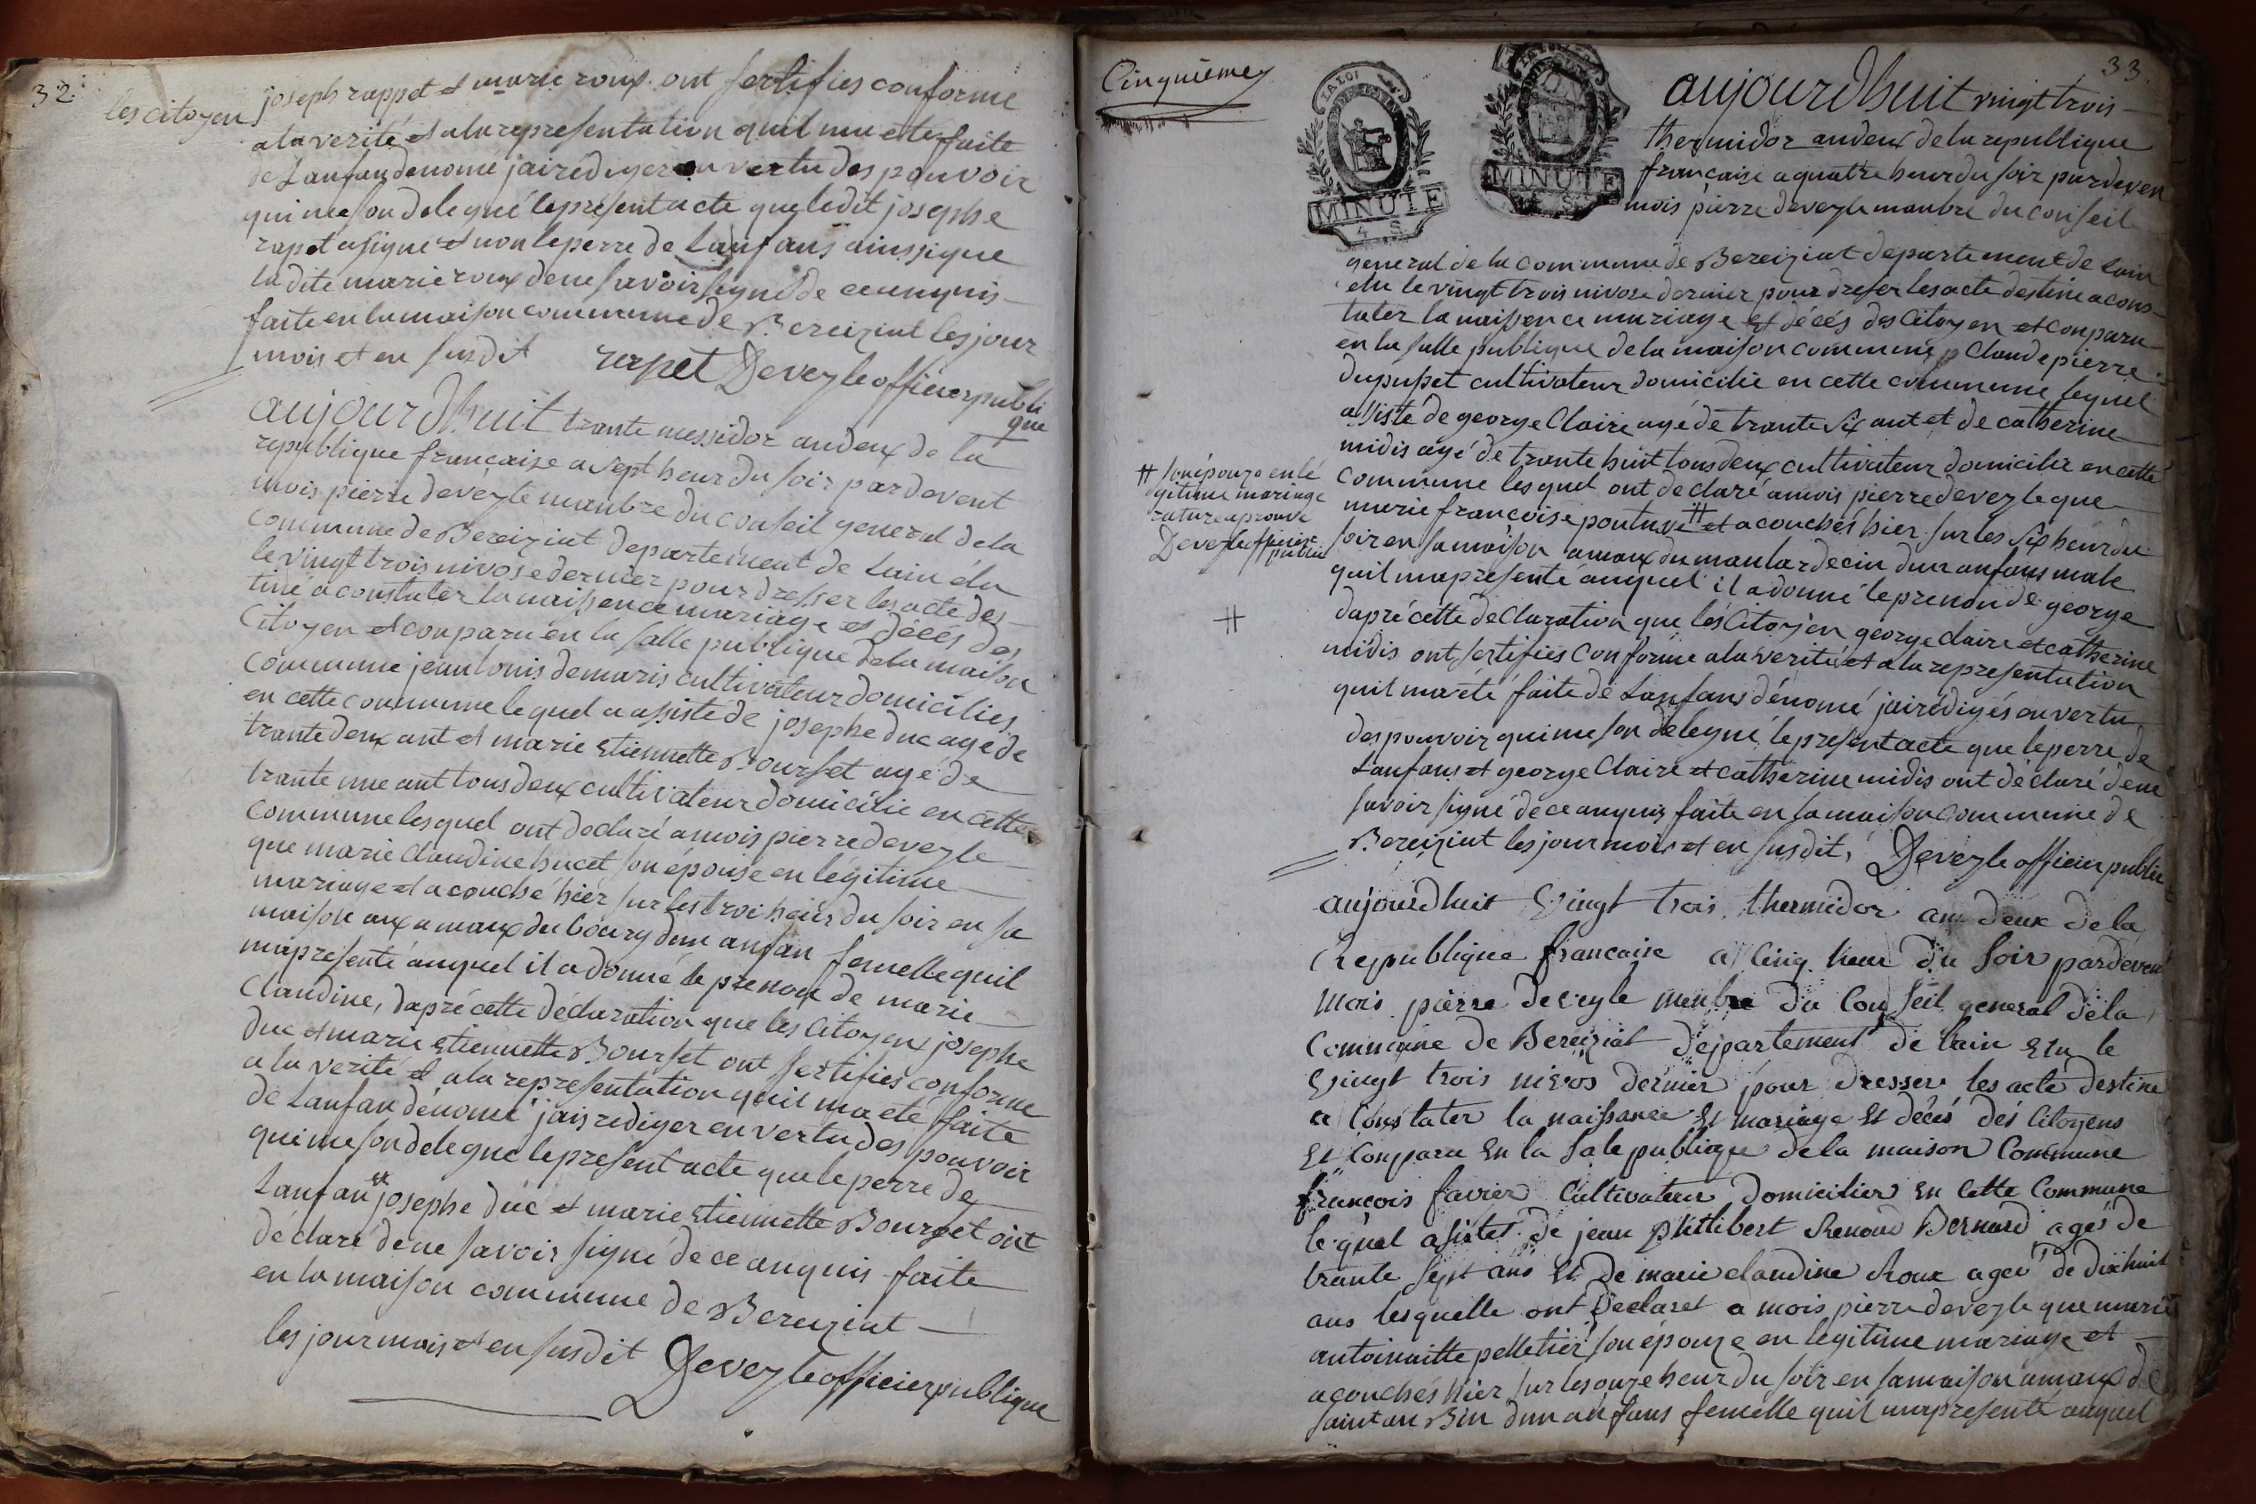 32
les citoyen joseph rappet et marie roux ont sertifies conforme
a la verité et a la representation quil ma eté faite
de Lanfan denomé jai rédiger en vertu des pouvoir
qui me son delegué le present acte que ledit josephe
rapet a signe et non le perre de Lanfans ainssi que
la dite marie roux de ne savoir signé de ce enquis
faite en la maison commune de Bereiziat les jour
mois et en susdit rapet Deveyle officier publi
que
aujourdhuit trante messidor an deux de la
republique française a sept heur du soir pardevent
mois pierre deveyle manbre du conseil general de la
commune de Bereiziat departement de Lain élu
le vingt trois nivose dernier pour dresser les acte des
tiné a constater la naissence mariage et décés des
Citoyen et conparu en la salle publique de la maison
commune jean louis demaris cultivateur domicilies
en cette commune lequel a assiste de josephe duc age de
trante deux ant et marie Etiennette Bourset age de
trante une ant tous deux cultivateur domicilie en cette
commune lesquel ont declaré a mois pierre deveyle
que marie Claudine bucet son epouse en légitime
mariage et a couché hier sur les troi heur du soir en sa
maison aux amaux du bourg dun anfan femelle quil
ma presenté auquel il a donné le prenom de marie
Claudine, dapré cette déclaration que les Citoyen josephe
duc et marie Etiennette Bourset ont sertifies conforme
a la verité et a la representation quil ma eté faite
de Lanfan dénomé jais rediger en vertu des pouvoir
qui me son delegué le present acte que le perre de
Lanfan et josephe duc et marie Etiennette Bourset ont
déclaré de ne savoir signé de ce anquis faite
en la maison commune de Bereiziat
les jour mois et en susdit Deveyle officier publique
33
Cinquieme
LA LOI
MINUTE
4 S
MINUTE
aujourdhuit vingt trois
thermidor an deux de la republique
française a quatre heur du soir pardeven
mois pierre deveyle manbre du conseil
general de la commune de Bereiziat departement de Lain
elu le vingt trois nivose dernier pour dreser les acte destine a cons
tater la naissence mariage et décés des Citoyen et conparu
en la salle publique de la maison commune Claude pierre
dupupet cultivateur domicilie en cette commune lequel
assisté de george Claire agé de trante six ant et de catherine
midis agé de trante huit tous deux cultivateur domicilie en cette
commune lesquel ont declaré a mois pierre deveyle que
marie francoise pontuve # et a couchés hier sur les six heur du
# son épouze en lé
gitime mariage
rature aprouvé
Deveyle officier
public
#
soir en sa maison amaux du manlardecin dun anfans male
quil ma presenté auquel il a donné le prenon de george
dapré cette declaration que lés Citoyen george claire et catherine
midis ont sertifiés conforme a la verité et a la representation
quil ma été faite dé Lanfans dénomé jai rédigés en vertu
des pouvoir qui me son delegué le present acte que le perre de
Lanfans et george Claire et catherine midis ont déclaré de ne
savoir signé de ce anquis faite en la maison commune de
Bereiziat les jour mois et en susdit, Deveyle officier public
aujourdhuit Vingt trois thermidor an deux de la
Republique francaise a Cinq heur du soir pardeven
mois pierre deveyle menbre du Conseil general de la
Commune de Bereiziat departement de lain Elu le
Vingt trois nivos dernier pour dresser les acte destine
a Constater la naissance Et mariage Et décés dés Citoyens
Et Conparu En la Sale publique de la maison Commune
francois favier Cultivateur domicilier En Cette Commune
le quel asistes de jean philibert Renoud Bernard agés de
trante sept ans Et de marie claudine Roux ageé de dix huit
ans lesquelle ont Declaret a mois pierre deveyle que marie
antoinaitte pelletier son épouze en legitime mariage et
a couchés hier sur les onze heur du soir en sa maison amaux de
saint an Bin dun anfans femelle quil ma presenté auquel